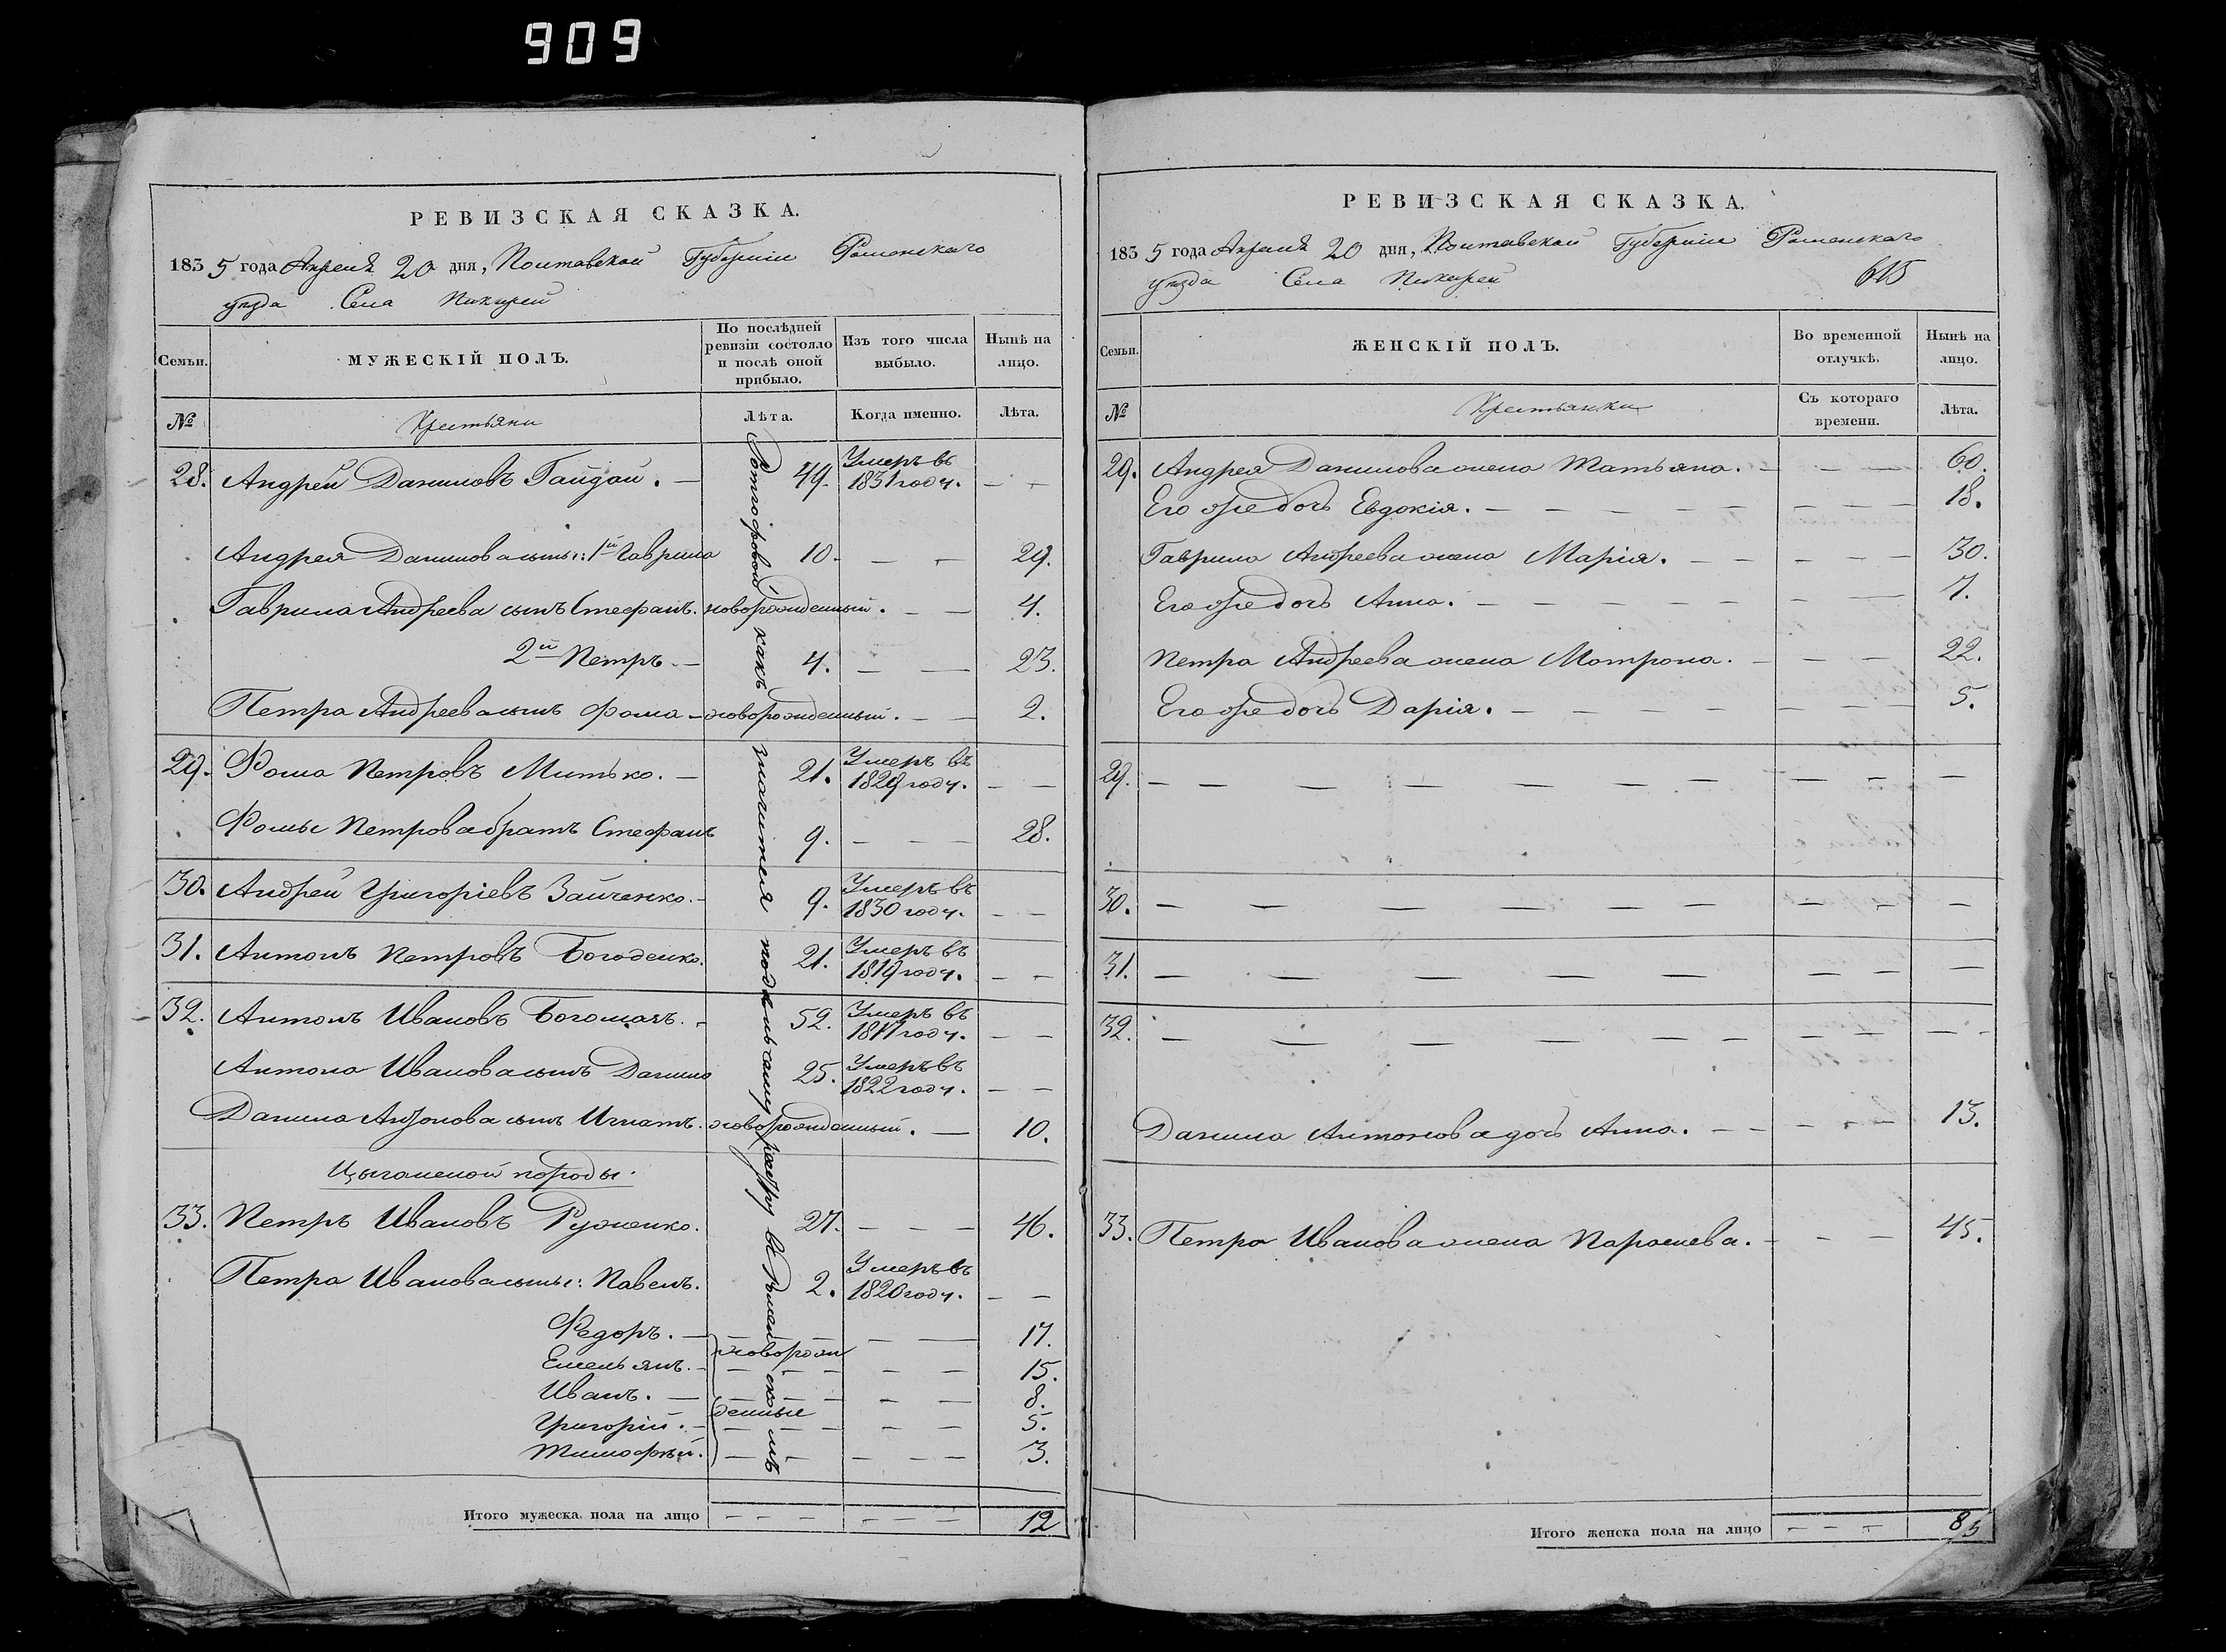 909
РЕВИЗСКАЯ СКАЗКА.
1835 года Апреля 20 дня, Полтавской Губерніи Роменскаго
уезда Села Пекарей
Семьи.
МУЖЕСКІЙ ПОЛЪ.
По послѣдней ревизіи состояло и послѣ оной прибыло.
Изъ того числа выбыло.
Нынѣ на лицо.
№
Крестьяни
Лѣта.
Когда именно.
Лѣта.
28. Андрей Даниловъ Гайдай. 49. Умеръ въ 1831 году.
Андрея Данилова сыны: 1й Гаврила 10. 29.
Гаврила Андреева сынъ Стефанъ. новорожденный. 4.
2й Петръ. 4. 23.
Петра Андреева сынъ Фома новорожденный. 2.
29. Фома Петровъ Митько. 21. Умеръ въ 1829 году.
Фомы Петрова братъ Стефанъ 9. 28.
30. Андрей Григоріевъ Зайченко. 9. Умеръ въ 1830 году.
31. Антонъ Петровъ Богоденко. 21. Умеръ въ 1819 году.
32. Антонъ Ивановъ Богомазъ. 52. Умеръ въ 1817 году.
Антона Иванова сынъ Данило 25. Умеръ въ 1822 году.
Данила Антонова сынъ Игнатъ. новорожденный. 10.
Цыганской породы.
33. Петръ Ивановъ Руженко. 27. 46.
Петра Иванова сыны: Павелъ. 2. Умеръ въ 1820 году.
Федоръ. 17.
новорож
Емельянъ. 15.
Иванъ. 8.
денные
Григорій. 5.
Тимофѣй. 3.
какъ значится
Итого мужеска пола на лицо 12
РЕВИЗСКАЯ СКАЗКА.
1835 года Апреля 20 дня, Полтавской Губерніи Роменскаго
уезда Села Пекарей
615
Семьи.
ЖЕНСКІЙ ПОЛЪ.
Во временной отлучкѣ.
Нынѣ на лицо.
№
Крестьянки
Съ котораго времени.
Лѣта.
29. Андрея Данилова жена Татьяна. 60.
Его же дочь Евдокія. 18.
Гаврила Андреева жена Марія. 30.
Его же дочь Анна. 7.
Петра Андреева жена Мотрона. 22.
Его же дочь Дарія. 5.
29.
30.
31.
32.
Данила Антонова дочь Анна. 13.
33. Петра Иванова жена Параскева. 45.
Итого женска пола на лицо 8